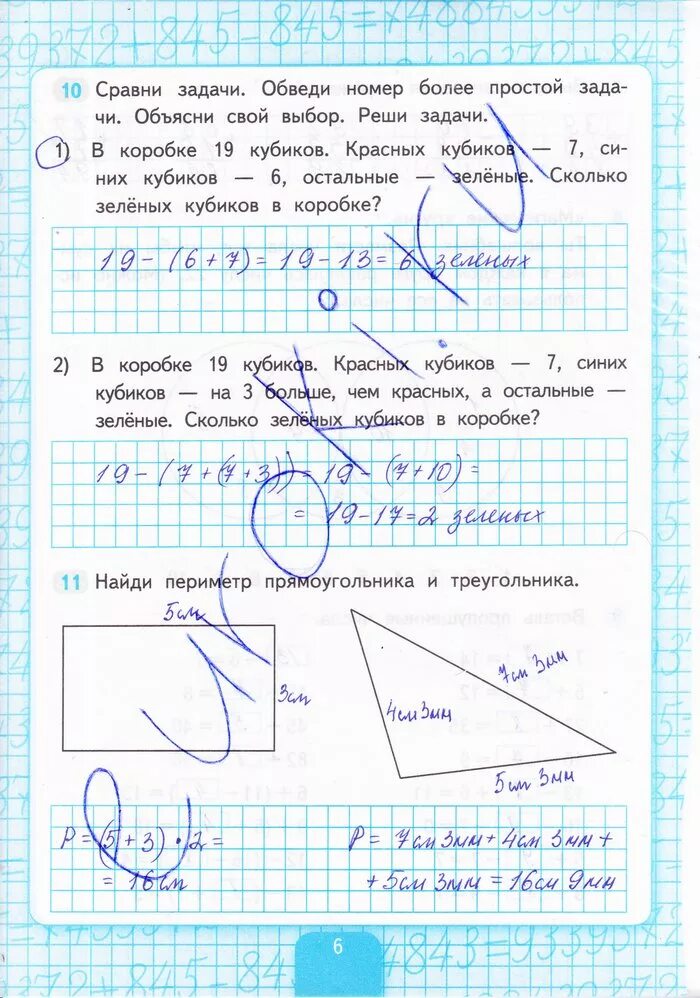 10 Сравни задачи. Обведи номер более простой зада-
чи. Объясни свой выбор. Реши задачи.
1) В коробке 19 кубиков. Красных кубиков — 7, си-
них кубиков — 6, остальные — зелёные. Сколько
зелёных кубиков в коробке?
19 - (6 + 7) = 19 - 13 = 6 зеленых
2) В коробке 19 кубиков. Красных кубиков — 7, синих
кубиков — на 3 больше, чем красных, а остальные —
зелёные. Сколько зелёных кубиков в коробке?
19 - (7 + (7 + 3)) = 19 - (7 + 10) =
= 19 - 17 = 2 зеленых
11 Найди периметр прямоугольника и треугольника.
5см
3см
7см 3мм
4см 3мм
5см 3мм
P = (5 + 3) · 2 =
= 16см
P = 7см 3мм + 4см 3мм +
+ 5см 3мм = 16см 9мм
6